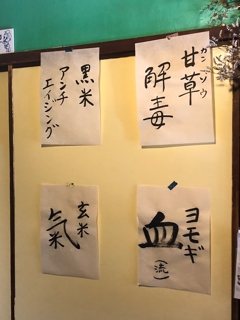 甘草
カンゾウ
解毒
黒米
アンチ
エイジング
ヨモギ
血
(流)
玄米
氣